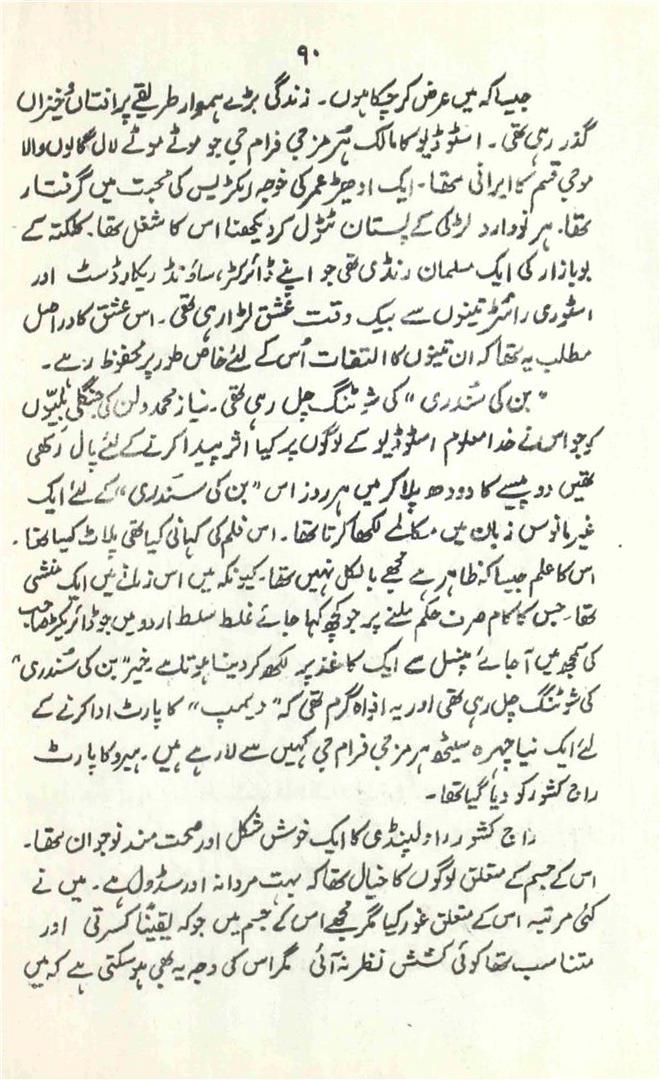 ۹۰
جیسا کہ میں عرض کر چکا ہوں۔ زندگی بڑے ہموار طریقے پر افتاں و خیزاں
گذر رہی تھی۔ اسٹوڈیو کا مالک ہرمز جی فرام جی جو موٹے موٹے لال گالوں والا
موجی قسم کا ایرانی تھا۔ ایک ادھیڑ عمر کی خوجہ ایکٹریس کی محبت میں گرفتار
تھا۔ ہر نووارد لڑکی کے پستان ٹٹول کر دیکھنا اس کا شغل تھا۔ کلکتہ کے
بوبازار کی ایک مسلمان رنڈی تھی جو اپنے ڈائرکٹر، ساؤنڈ ریکارڈسٹ اور
اسٹوری رائٹر تینوں سے بیک وقت عشق لڑا رہی تھی۔ اس عشق کا دراصل
مطلب یہ تھا کہ ان تینوں کا التفات اُس کے لئے خاص طور پر محفوظ رہے۔
"بن کی سُندری" کی شوٹنگ چل رہی تھی۔ نیاز محمد ولن کی جنگلی بلیّوں
کو جو اس نے خدا معلوم اسٹوڈیو کے لوگوں پر کیا اثر پیدا کرنے کے لئے پال رکھی
تھیں دو پیسے کا دودھ پلا کر میں ہر روز اس "بن کی سندری" کے لئے ایک
غیر مانوس زبان میں مکالمے لکھا کرتا تھا۔ اس فلم کی کہانی کیا تھی پلاٹ کیسا تھا۔
اس کا علم جیسا کہ ظاہر ہے مجھے بالکل نہیں تھا۔ کیونکہ میں اس زمانے میں ایک منشی
تھا۔ جس کا کام صرف حکم ملنے پر جو کچھ کہا جائے غلط سلط اردو میں جو ڈائریکٹر صاحب
کی سمجھ میں آجائے پنسل سے ایک کاغذ پر لکھ کر دینا ہوتا ہے خیر "بن کی سُندری"
کی شوٹنگ چل رہی تھی اور یہ افواہ گرم تھی کہ "ویمپ" کا پارٹ ادا کرنے کے
لئے ایک نیا چہرہ سیٹھ ہرمز جی فرام جی کہیں سے لا رہے ہیں۔ ہیرو کا پارٹ
راج کشور کو دیا گیا تھا۔
راج کشور راولپنڈی کا ایک خوش شکل اور صحت مند نوجوان تھا۔
اس کے جسم کے متعلق لوگوں کا خیال تھا کہ بہت مردانہ اور سڈول ہے۔ میں نے
کئی مرتبہ اس کے متعلق غور کیا مگر مجھے اس کے جسم میں جو کہ یقیناً کسرتی اور
متناسب تھا کوئی کشش نظر نہ آئی مگر اس کی وجہ یہ بھی ہو سکتی ہے کہ میں